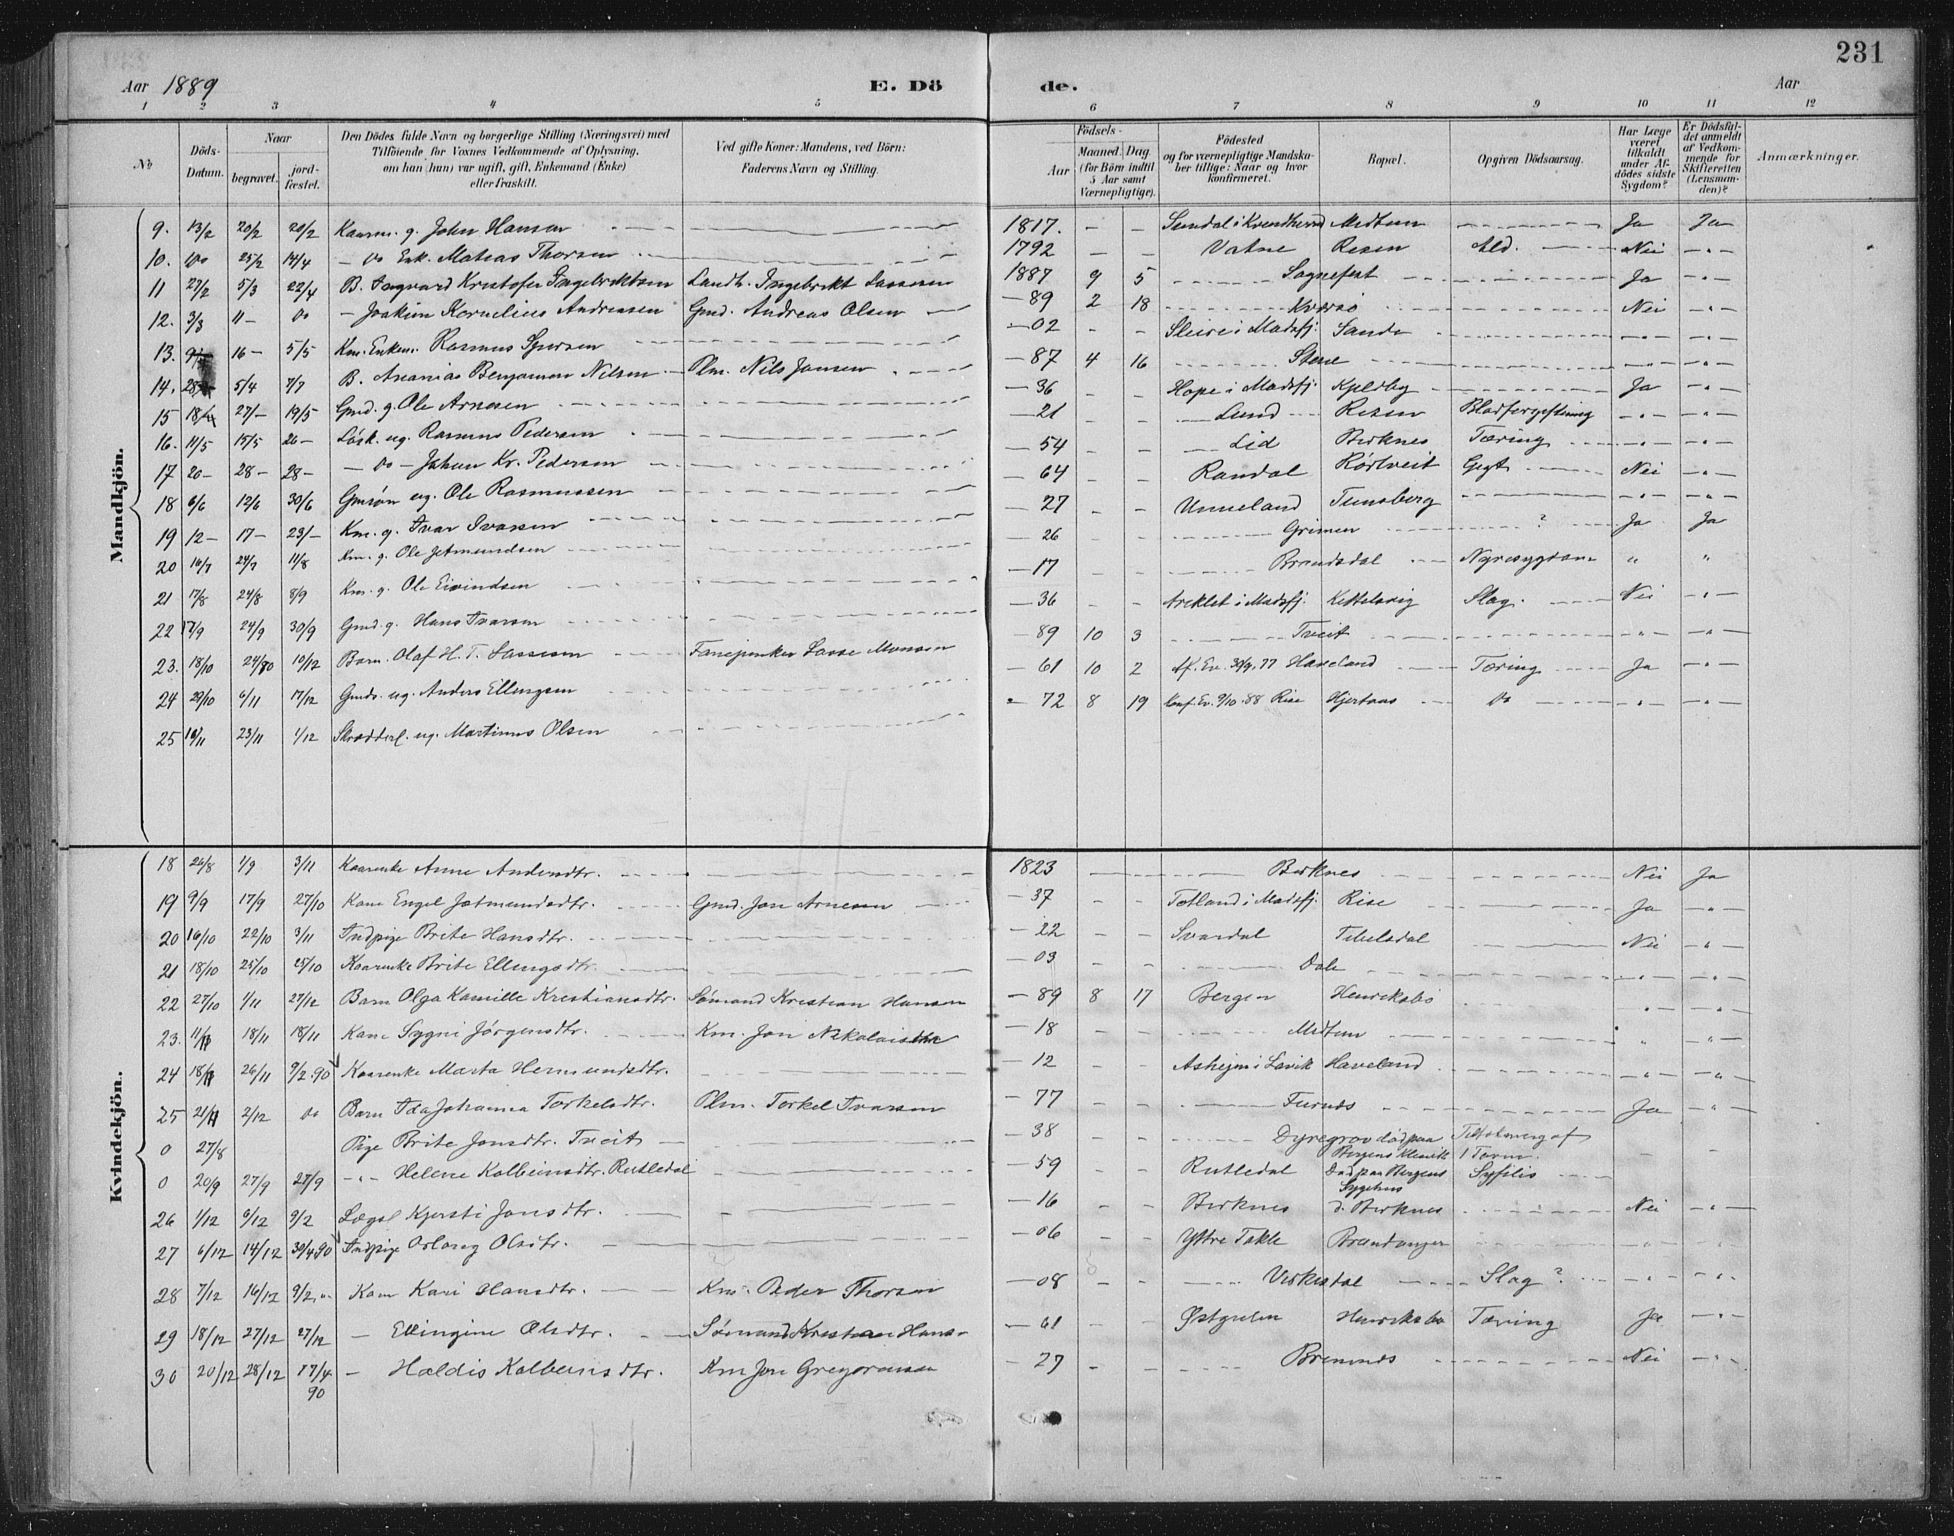 231
Aar 1889 E. Dö de. Aar
1 2 3 4 5 6 7 8 9 10 11 12
No
Döds-Datum.
Naar begravet. jordfæstet.
Den Dödes fulde Navn og borgerlige Stilling (Næringsvei) med
Tilföiende for Voxnes Vedkommende af Oplysning,
om han (hun) var ugift, gift, Enkemand (Enke)
eller fraskilt.
Ved gifte Koner: Mandens, ved Börn:
Faderens Navn og Stilling.
Födsels-
Aar Maaned. Dag
(for Börn indtil 5 Aar samt Værnepligtige).
Födested
og for værnepligtige Mandskaber tillige: Naar og hvor konfirmeret.
Bopæl.
Opgiven Dödsaarsag.
Har Læge været tilkaldt under Afdödes sidste Sygdom?
Er Dödsfaldet anmeldt af Vedkommende for Skifteretten (Lensmanden)?
Anmærkninger.
Mandkjön.
9. 13/2 20/2 20/2 Kaarm. g. John Hansen 1817. - - Sundal i Kvindherred Midtun Ja Ja
10. do 25/2 14/4 - do Enk. Matias Thorsen 1792 - - Vatne Risen Ald. Nei - " -
11 27/2 5/3 22/4 B. Ingvard Kristofer Ingebriktsen Landh. Ingebrikt Lassesen 1887 9 5 Sognefest Ja - " -
12. 3/3 11 - do - Joakim Kornelius Andreasen Gmd. Andreas Olsen - 89 2 18 Kversø Nei - " -
13. 16 - 5/5 Km. Enkem. Rasmus - 02 - - Sleire i Madsfj. Sande - " - - " -
14. 5/4 7/7 B. Ananias Benjamin Nilsen Plm. Nils Jansen - 87 4 16 Stene - " - - " -
15 27 - 19/5 Gmd. g. Ole Arnesen - 36 - - Hope i Madsfj. Kjeldby Ja - " -
16. 11/5 15/5 26 - Løsk. ug. Rasmus Pedersen - 21 - - Lund Risen Blodforgiftning - " - - " -
17 20 - 28 - 28 - - do - Johan Kr. Pedersen - 54 - - Lid Birknes Tæring - " - - " -
18 6/6 12/6 30/6 Gmsøn ug. Ole Rasmussen - 64 - - Randal Rørtveit Gigt Nei - " -
19 12 - 17 - 23/- Km. g. Ivar Ivarsen - 27 - - Unneland Tunsberg - " - - " -
20 16/7 24/7 11/8 Km. g. Ole Jetmundsen - 26 - - Grimen ? Ja Ja
21 17/8 24/8 8/9 Km. g. Ole Eivindsen - 17 - - Brandsdal Nyresygdom " "
22 17/9 24/9 30/9 Gmd. g. Hans Ivarsen - 36 - - i Madsfj. Kittelsvig Slag. Nei - " -
23. 18/10 10/12 Barn. Olaf H. T. Lassesen Fanejunker Lasse Monsen - 89 10 3 Tveit - " - - " -
24 29/10 6/11 17/12 Gmds. ug. Anders Ellingsen - 61 10 2 Haveland Tæring Ja - " -
25 16/11 23/11 1/12 Skrædderl. ug. Martinus Olsen - 72 8 19 Konf. Ev. 9/10 88 Rise Hjertaas do - " - - " -
Kvindekjön.
18 26/8 1/9 3/11 Kaarenke Anne Andersdtr. 1823 Birknes Nei Ja
19 9/9 17/9 27/10 Kone Engel Jetmundsdtr. Gmd. Jon Arnesen - 37 - - Totland i Madsfj. Rise Ja - " -
20 16/10 22/10 3/11 Indpige Brite Hansdtr. - 22 - - Svardal Tibelsdal Nei - " -
21 18/10 25/10 25/10 Kaarenke Brite Ellingsdtr. - 03 - - Dale - " - - " -
22 27/10 1/11 27/12 Barn Olga Kamille Kristiansdtr. Sømand Kristian Hansen - 89 8 17 Bergen Henriksbø - " - - " -
23. 11/11 18/11 18/11 Kone Sygni Jørgensdtr. Km. Jon Nikolaisen - 18 - - Midtun " - " -
24 18/11 26/11 9/2.90 Kaarenke Marta Hermundsdtr. - 12 - - Asheim i Lavik Haveland - " - - " -
25 21/11 2/12 do Barn Ida Johanna Torkelsdtr. Plm. Torkel Ivarsen - 77 Furnes Ja - " -
0 27/8 Pige Brite Jonsdtr. Tveit - 38 Dyregrov død paa Bergens Klinik
0 20/9 27/9 27/9 - " - Helene Kolbeinsdtr. Rutledal - 59 Rutledal Død paa Bergens Sygehus Syfilis
26 1/12 6/12 9/2 Lægsl Kjersti Jonsdtr. - 16 - - Birknes d. Birknes Nei - " -
27 6/12 14/12 30/4 90 Indpige Oslaug Olsdtr. - 06 - - Yttre Takle Brandanger - " - - " -
28 7/12 16/12 9/2. " Kone Kari Hansdtr. Km. Peder Thorsen - 08 - - Virkesdal Slag ? - " - - " -
29 18/12 27/12 27/12 - Ellingine Olsdtr. Sømand Kristian Hansen - 61 - - Østgulen Henriksbø Tæring Ja - " -
30 20/12 28/12 17/4 90 - Haldis Kolbeinsdtr. Km Jon Gregoriussen - 27 - - Bremnes Nei - " -